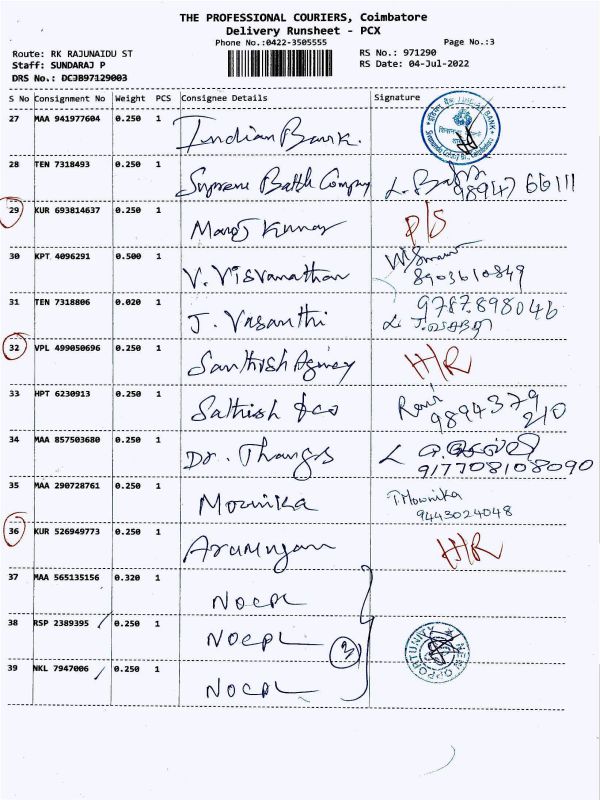 THE PROFESSIONAL COURIERS, Coimbatore
Delivery Runsheet - PCX
Phone No.:0422-3505555
Page No.:3
Route: RK RAJUNAIDU ST
RS No.: 971290
Staff: SUNDARAJ P
RS Date: 04-Jul-2022
DRS No.: DCJB97129003
S No Consignment No Weight PCS Consignee Details Signature
27 MAA 941977604 0.250 1 Indian Bank.
28 TEN 7318493 0.250 1 Supreme Battle Company
98947 66111
29 KUR 693814637 0.250 1 Manoj Kumar P/S
30 KPT 4096291 0.500 1 V. Visvanathan
8903610849
31 TEN 7318806 0.020 1 J. Vasanthi
9787898046
32 VPL 499050696 0.250 1 Santhish Agincy H/R
33 HPT 6230913 0.250 1 Sathish & co
9894379
210
34 MAA 857503680 0.250 1 Dr. Thangs
917708108090
35 MAA 290728761 0.250 1 Mownika T Mownika
9443024048
36 KUR 526949773 0.250 1 Arumugam H/R
37 MAA 565135156 0.320 1 NOCPL
38 RSP 2389395 0.250 1 NOCPL 3
NEW OPPORTUNITY
39 NKL 7947006 0.250 1 NOCPL